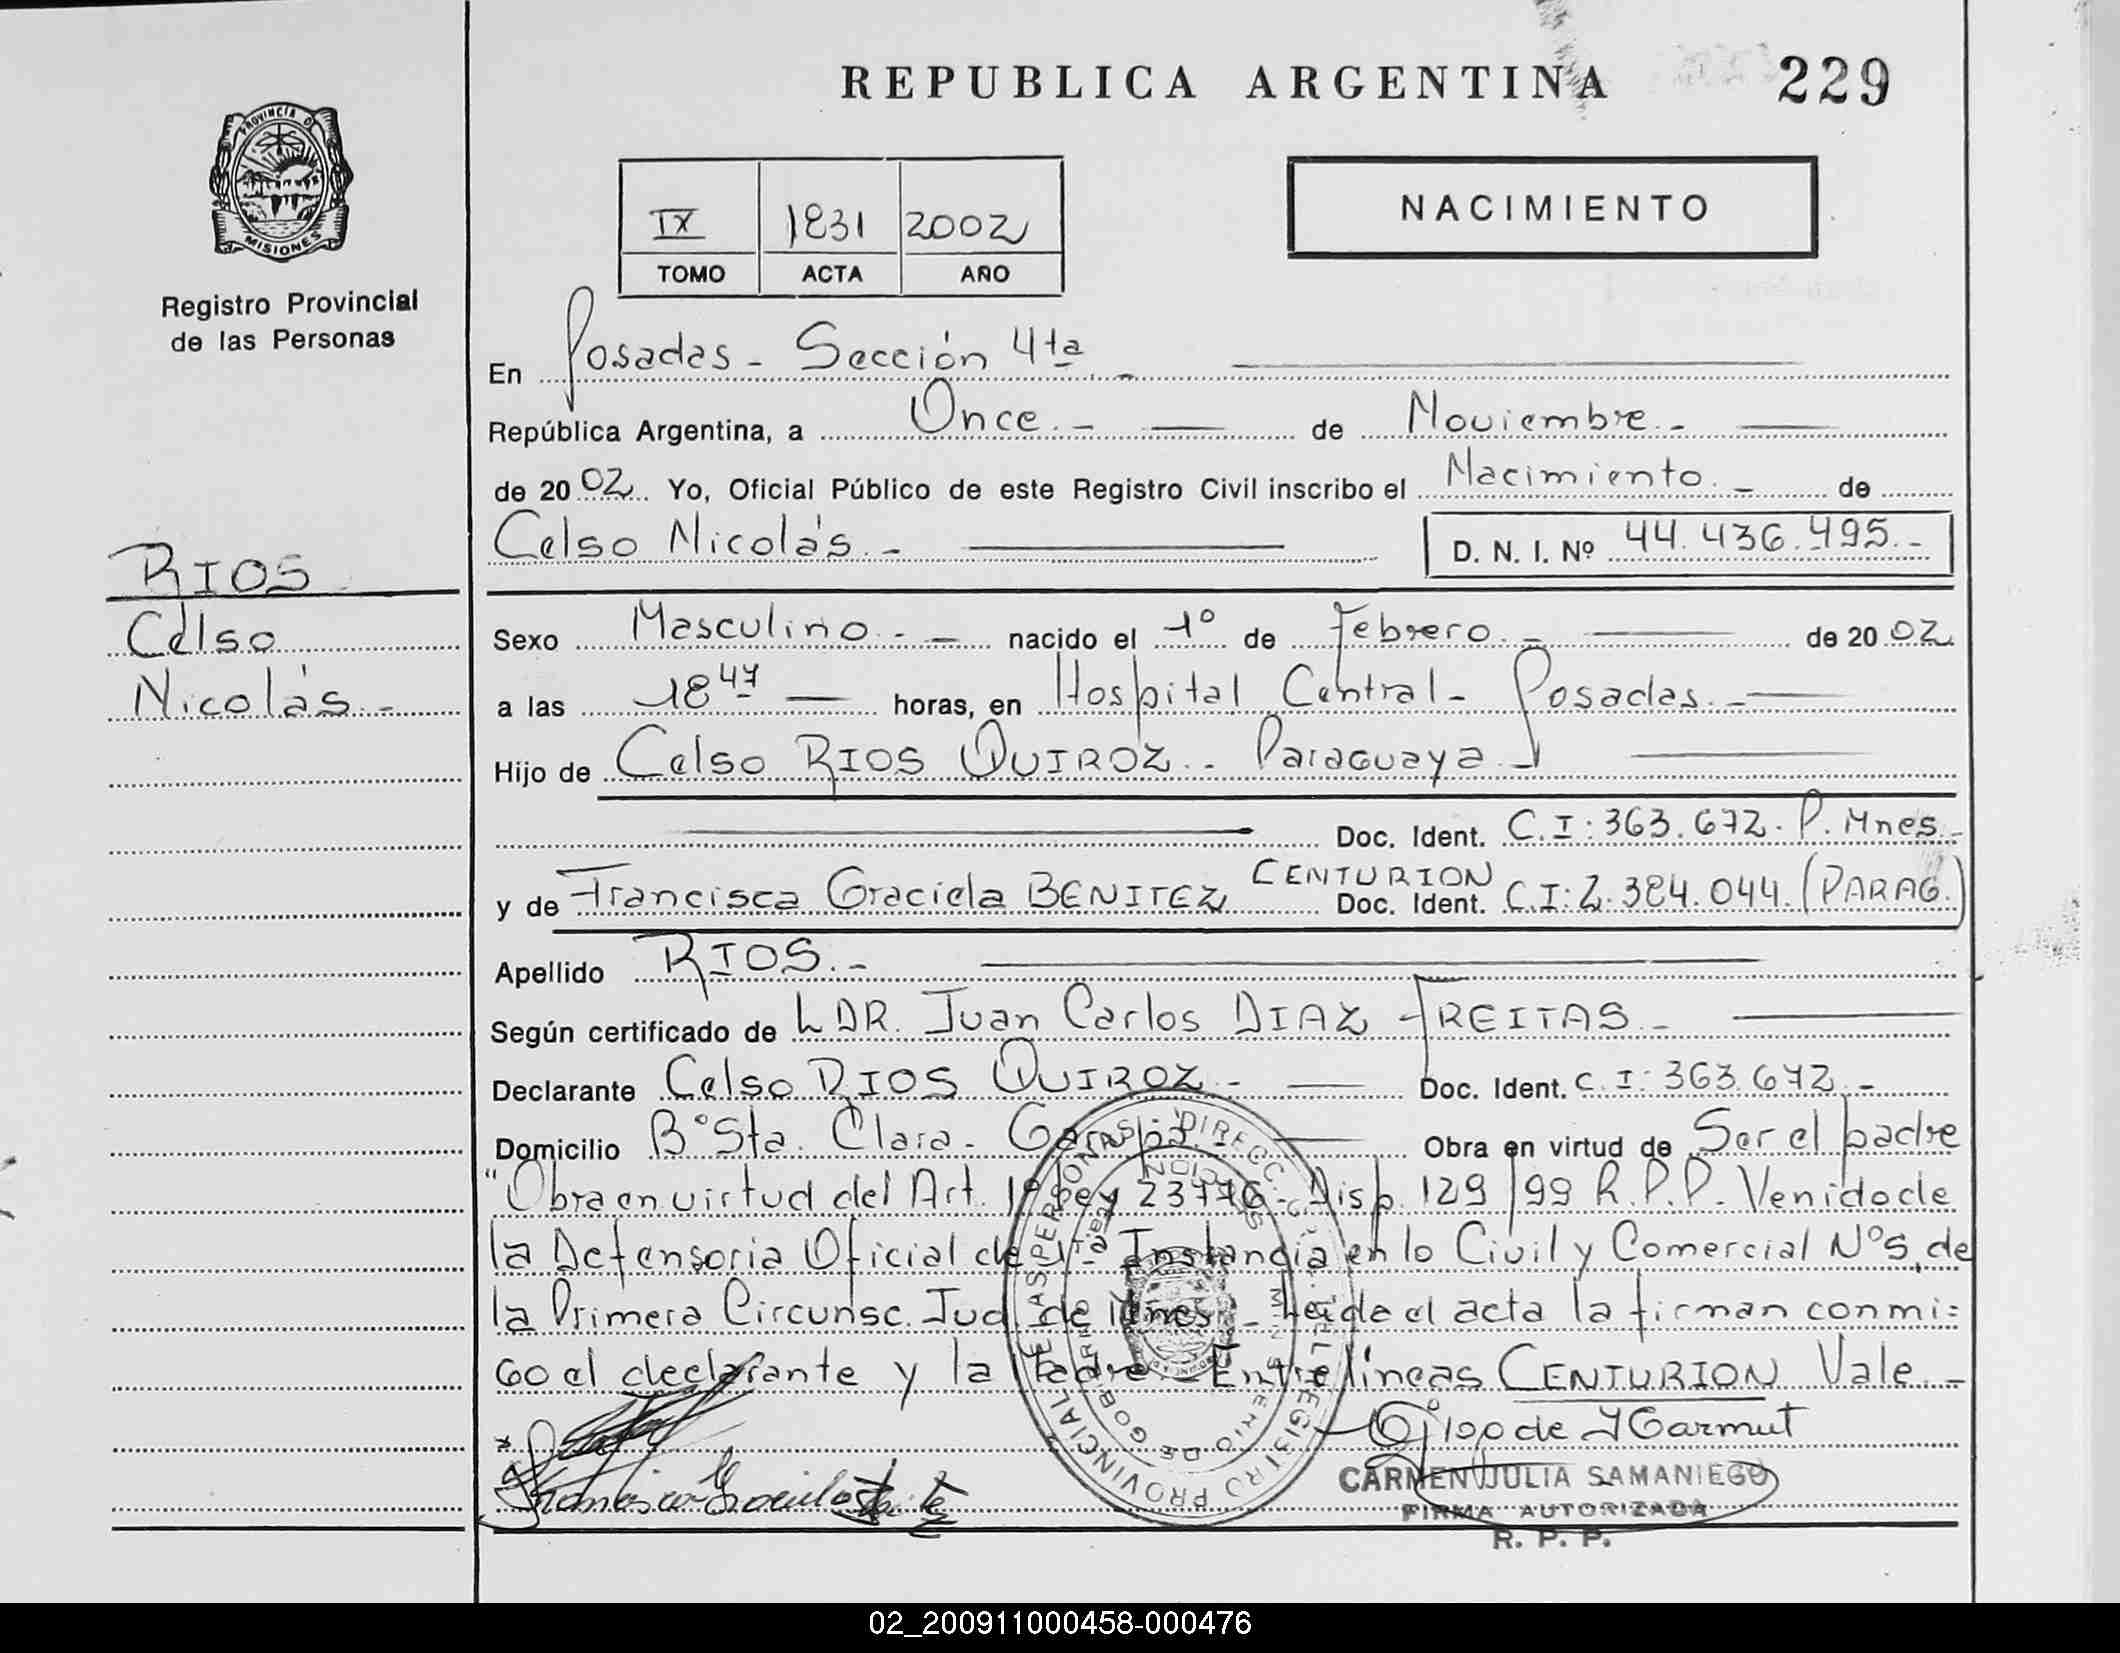 REPUBLICA ARGENTINA 229
PROVINCIA DE
MISIONES
Registro Provincial
de las Personas
IX 1831 2002
TOMO ACTA AÑO
NACIMIENTO
En Posadas - Sección 4ta. -
República Argentina, a Once. - de Noviembre. -
de 2002. Yo, Oficial Público de este Registro Civil inscribo el Nacimiento. - de
Celso Nicolás. - D. N. I. Nº 44.436.495. -
RIOS
Celso
Nicolás. -
Sexo Masculino. - nacido el 1º de Febrero. - de 2002
a las 18 47 horas, en Hospital Central - Posadas. -
Hijo de Celso RIOS QUIROZ. - Paraguaya. -
Doc. Ident. C.I: 363.672. P. Mnes. -
y de Francisca Graciela BENITEZ CENTURION Doc. Ident. C.I: 2.384.044. (PARAG.)
Apellido RIOS. -
Según certificado de LDR. Juan Carlos DIAZ FREITAS. -
Declarante Celso RIOS QUIROZ. - Doc. Ident. C.I: 363.672. -
Domicilio Bº Sta. Clara - Garupá. - Obra en virtud de Ser el padre
"Obra en virtud del Art. 1º Ley 23776 - Disp. 129/99 R.P.P. Venido de
la Defensoria Oficial de 1ra Instancia en lo Civil y Comercial Nº5, de
la Primera Circunsc. Jud. de Mnes. - Leida el acta la firman conmi=
go el declarante y la Madre - Entrelíneas CENTURION Vale. -
DIRECC. GRAL. DEL REGISTRO PROVINCIAL DE LAS PERSONAS
MINISTERIO DE GOBIERNO
CARMEN JULIA SAMANIEGO
FIRMA AUTORIZADA
R. P. P.
02_200911000458-000476